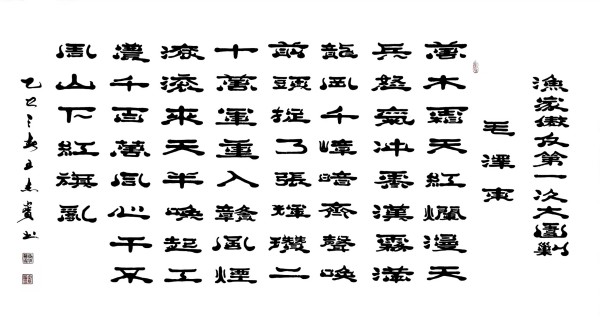 漁家傲反第一次大圍剿
毛澤東
萬木霜天紅爛漫天
兵怒氣沖霄漢霧滿
龍岡千嶂暗齊聲喚
前頭捉了張輝瓚二
十萬軍重入贛風煙
滾滾來天半喚起工
農千百萬同心干不
周山下紅旗亂
乙巳之春王志